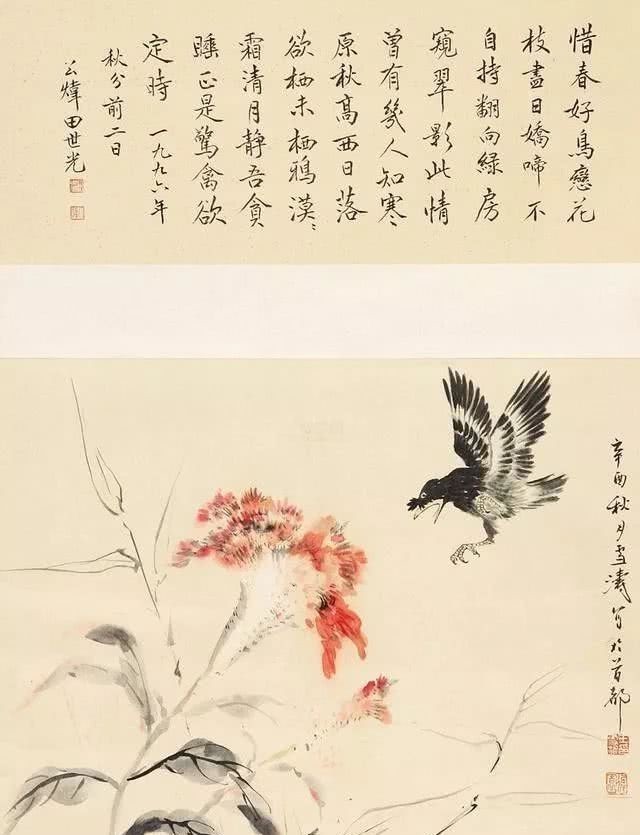 惜春好鳥戀花
枝盡日嬌啼不
自持翻向綠房
窺翠影此情
曾有幾人知寒
原秋高西日落
欲栖未栖鴉漠〻
霜清月靜吾貪
睡正是驚禽欲
定時 一九九六年
秋分前二日
公煒田世光
辛酉秋月雪濤写於首都